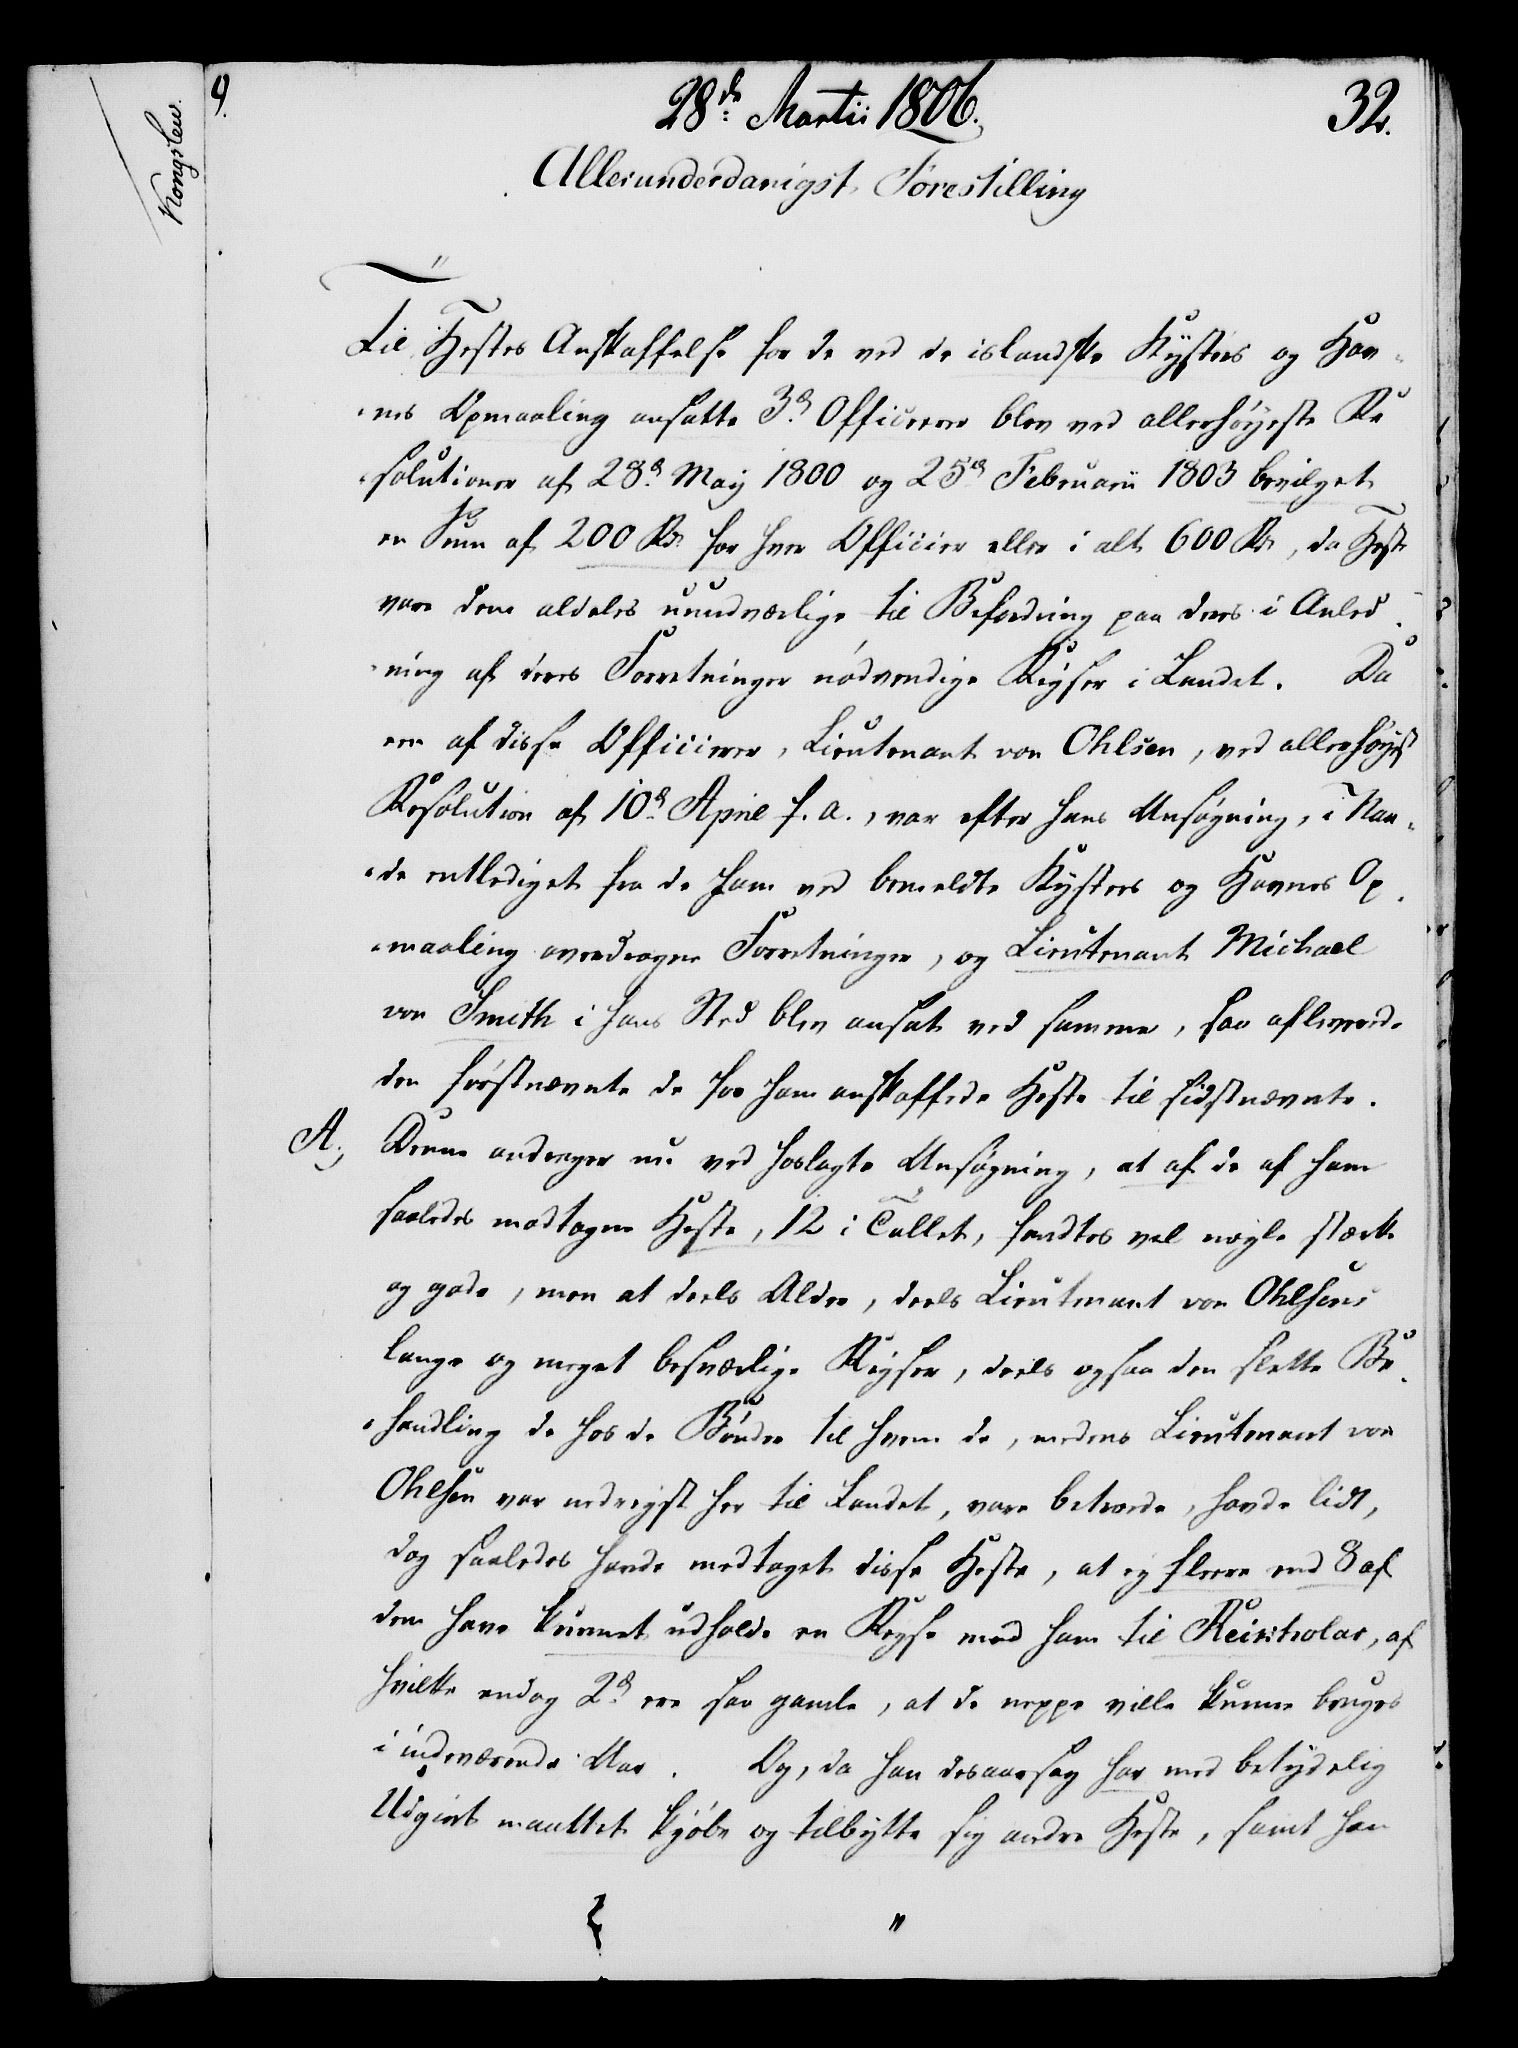 Kongslew.
9.
28de Martii 1806.
32.
Allerunderdanigst Forestilling
Til Hestes Anskaffelse for de ved de islandske Kysters og Hav-
-nes Opmaaling ansatte 3de Officierer blev ved allerhöyeste Re
-solutioner af 28de May 1800 og 25de Februarii 1803 bevilget
en Sum af 200 Rd for hver Officier eller i alt 600 Rd, da Heste
vare dem aldeles uundværlige til Befordring paa deres i Anled-
-ning af deres Forretninger nödvendige Reyser i Landet. Da
een af disse Officierer, Lieutenant von Ohlsen, ved allerhöyeste
Resolution af 10de April f. a., var efter hans Ansögning, i Naa-
-de entlediget fra de ham ved bemeldte Kysters og Havnes Op-
-maaling overdragne Forretninger, og Lieutenant Michael
von Smith i hans Sted blev ansat ved samme, saa afleverede
den förstnævnte de for ham anskaffede Heste til sidstnævnte.
A.) Denne andrager nu ved hoslagte Ansögning, at af de af ham
saaledes modtagne Heste, 12 i Tallet, fandtes vel nogle stærke
og gode, men at deels Alder, deels Lieutenant von Ohlsens
lange og meget besværlige Reyser, deels ogsaa den slette Be-
-handling de hos de Bönder til hvem de, medens Lieutenant von
Ohlsen var nedreyst her til Landet, vare betroede, havde lidt,
dog saaledes havde medtaget disse Heste, at ey fleere end 8 af
dem have kunnet udholde en Reyse med ham til Reikholar, af
hvilke endog 2de ere saa gamle, at de neppe ville kunne bruges
i indeværende Aar. Og, da han desaarsag har med betydelig
Udgivt maattet kjöbe og tilbytte sig andre Heste, samt han